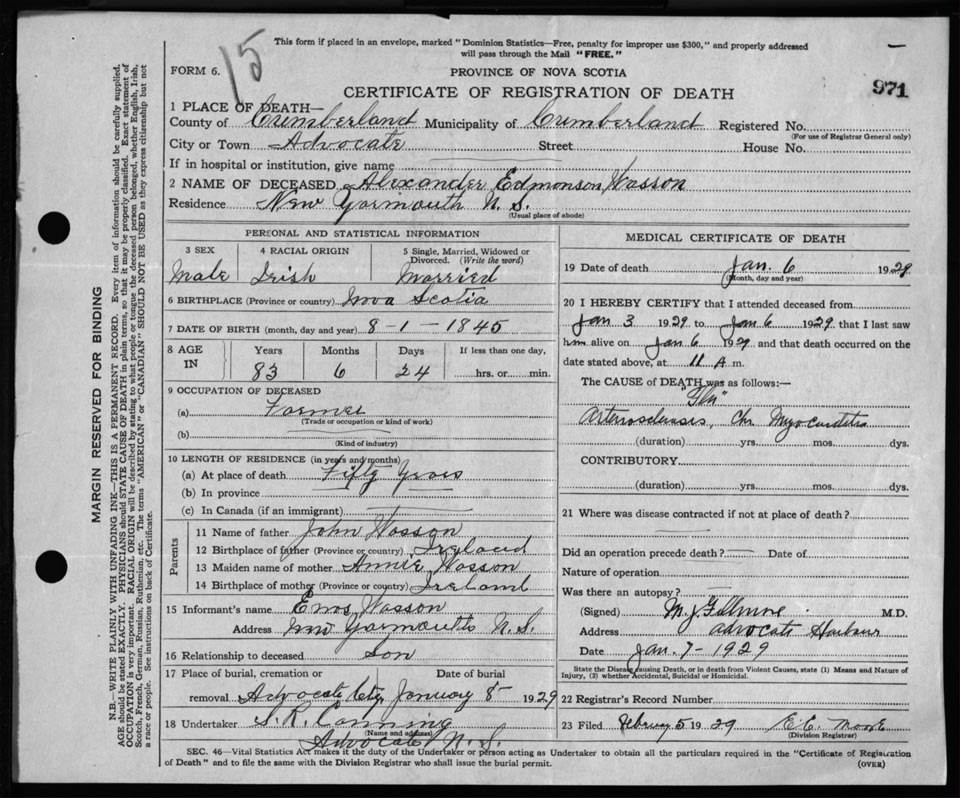 15
This form if placed in an envelope, marked "Dominion Statistics—Free, penalty for improper use $300," and properly addressed
will pass through the Mail "FREE."
FORM 6.
PROVINCE OF NOVA SCOTIA
CERTIFICATE OF REGISTRATION OF DEATH
971
1 PLACE OF DEATH—
County of Cumberland Municipality of Cumberland Registered No.
(For use of Registrar General only)
City or Town Advocate Street House No.
If in hospital or institution, give name
2 NAME OF DECEASED Alexander Edmonson Wasson
Residence New Yarmouth N.S.
(Usual place of abode)
PERSONAL AND STATISTICAL INFORMATION
3 SEX 4 RACIAL ORIGIN 5 Single, Married, Widowed or
Divorced. (Write the word)
Male Irish Married
6 BIRTHPLACE (Province or country) Nova Scotia
7 DATE OF BIRTH (month, day and year) 8-1-1845
8 AGE IN Years Months Days If less than one day,
83 6 24 hrs. or min.
9 OCCUPATION OF DECEASED
(a) Farmer
(Trade or occupation or kind of work)
(b)
(Kind of industry)
10 LENGTH OF RESIDENCE (in years and months)
(a) At place of death Fifty Years
(b) In province
(c) In Canada (if an immigrant)
Parents
11 Name of father John Wasson
12 Birthplace of father (Province or country) Ireland
13 Maiden name of mother Annie Wasson
14 Birthplace of mother (Province or country) Ireland
15 Informant's name Enos Wasson
Address New Yarmouth N.S.
16 Relationship to deceased Son
17 Place of burial, cremation or Date of burial
removal Advocate January 8 1929
18 Undertaker S. R. Canning
(Name and address)
Advocate N.S.
MEDICAL CERTIFICATE OF DEATH
19 Date of death Jan. 6 1929
(Month, day and year)
20 I HEREBY CERTIFY that I attended deceased from
Jan 3 1929 to Jan 6 1929 that I last saw
him alive on Jan 6 1929 and that death occurred on the
date stated above, at 11 A. m.
The CAUSE of DEATH was as follows:—
"Flu"
Arteriosclerosis, Chr Myocarditis
(duration) yrs. mos. dys.
CONTRIBUTORY
(duration) yrs. mos. dys.
21 Where was disease contracted if not at place of death?
Did an operation precede death? Date of
Nature of operation
Was there an autopsy?
(Signed) M. J. M.D.
Address Advocate Harbour
Date Jan. 7-1929
State the Disease causing Death, or in death from Violent Causes, state (1) Means and Nature of
Injury, (2) whether Accidental, Suicidal or Homicidal.
22 Registrar's Record Number
23 Filed February 5 1929 E.C. Moore
(Division Registrar)
SEC. 46—Vital Statistics Act makes it the duty of the Undertaker or person acting as Undertaker to obtain all the particulars required in the "Certificate of Registration
of Death" and to file the same with the Division Registrar who shall issue the burial permit. (OVER)
MARGIN RESERVED FOR BINDING
N.B.—WRITE PLAINLY WITH UNFADING INK—THIS IS A PERMANENT RECORD. Every item of information should be carefully supplied.
AGE should be stated EXACTLY. PHYSICIANS should STATE CAUSE OF DEATH in plain terms, so that it may be properly classified. Exact statement of
OCCUPATION is very important. RACIAL ORIGIN will be described by stating to what people or tongue the deceased person belonged, whether English, Irish,
Scotch, French, German, Russian, Ruthenian, etc. The terms "AMERICAN" or "CANADIAN" SHOULD NOT BE USED as they express citizenship but not
a race or people. See instructions on back of Certificate.